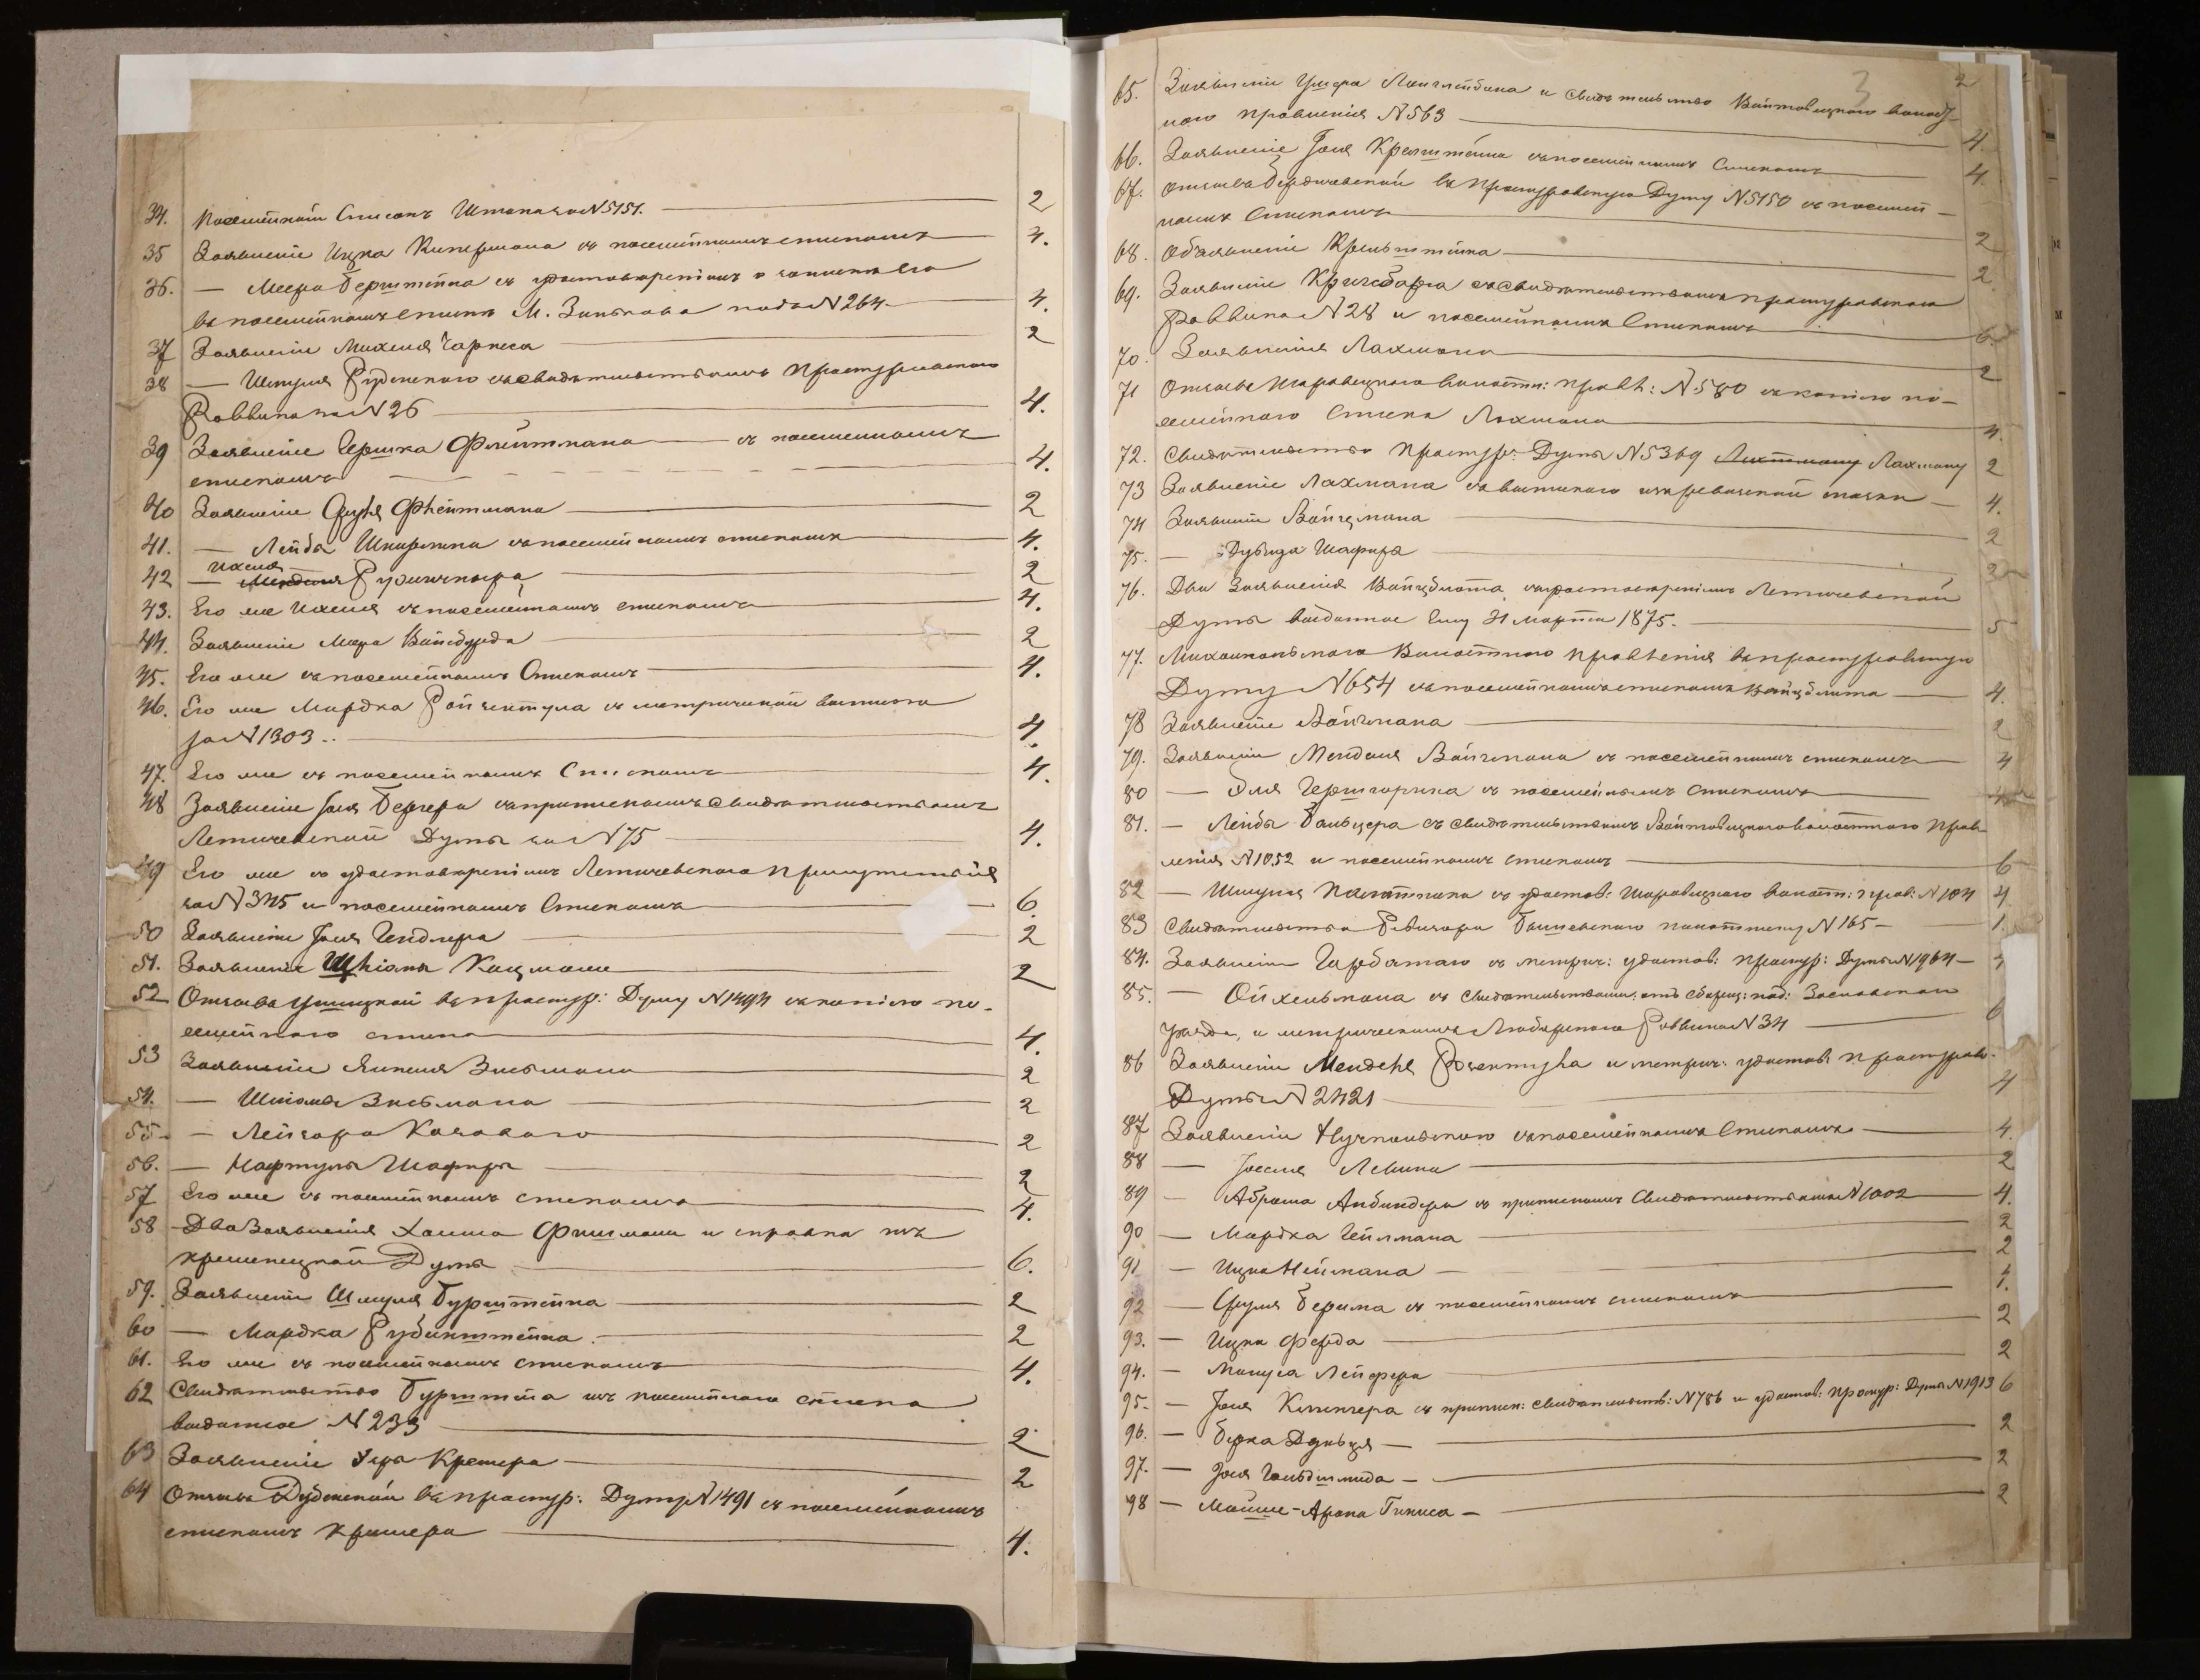 34. Посемейный Списокъ Штопа за N 5151. 2
35 Заявленіе Ицка Кипермана съ посемейнымъ спискомъ 4.
36. — Меера Берштейна съ удостовѣреніемъ о записи его
въ посемейномъ списке М. Зинькова подъ N 264 4.
37 Заявленіе Михеля Чарниса 2
38 — Шмуля Руденскаго съ свидѣтельствомъ Проскуровскаго
Раввина за N 26 4.
39 Заявленіе Гершка Флейтмана съ посемейнымъ
спискомъ 4.
40 Заявленіе Сруля Флейтмана 2
41. — Лейба съ посемейнымъ спискомъ 4.
42 — Ихеля 2
43. Его же Ихеля съ посемейнымъ спискомъ 4.
44. Заявленіе Мера Вайсбурда 2
45. Его же съ посемейнымъ Спискомъ 4.
46. Его же Мордка съ метрической выписью
за N 1303.. 4.
47. Его же съ посемейнымъ Спискомъ 4.
48 Заявленіе Іоля Бергера съ приписнымъ свидѣтельствомъ
Летичевской Думы за N 75 4.
49 Его же съ удостовѣреніемъ Летичевскаго Присутствія
за N 345 и посемейнымъ Спискомъ 6.
50 Заявленіе Іоля Гендлера 2
51. Заявленіе Шліомы Кацмана 2
52 Отзывъ Ушицкой въ Проскур: Думу N 1494 съ копіею по-
семейнаго списка 4.
53 Заявленіе Янкеля Зисьмана 2
54. — Шліомы Зисьмана 2
55. — Лейзора Козоваго 2
56. — Нафтулы Шафиры 2
57 Его же съ посемейнымъ спискомъ 4.
58 Два Заявленія Хаима Фишмана и справка изъ
Кременецкой Думы 6.
59. Заявленіе Шмуля Бурштейна 2
60 — Мордка Рубинштейна. 2
61. Его же съ посемейнымъ спискомъ 4.
62 Свидѣтельство Бурштейна изъ посемейнаго списка
выданное N 233 2
63 Заявленіе Уера Кремера 2
64 Отзывъ Дубенской въ Проскур: Думу N 1491 съ посемейнымъ
спискомъ Кремера 4.
3 2
65. Заявленіе Ушера и свидѣтельство Войтовецкаго волост-
наго правленія N 563 4
66. Заявленіе Іоля съ посемейнымъ Спискомъ 4.
67. Отзывъ Бердичевской въ Проскуровскую Думу N 5150 съ посемей-
нымъ Спискомъ 2
68. Объявленіе 2.
69. Заявленіе съ свидѣтельствомъ Проскуровскаго
Раввина N 28 и посемейнымъ Спискомъ 6.
70. Заявленія Лахмана 2
71 Отзывъ Шаровецкаго Волостн: правл: N 580 съ копіею по-
семейнаго списка Лахмана 4.
72. Свидѣтельство Проскур: Думы N 5369 Лахману 2
73 Заявленіе Лахмана съ выпискою изъ ревизской сказки 4.
74 Заявленіе Войцмана 2
75. — Дувида Шафира 2
76. Два Заявленія Вайцблита съ удостовѣреніемъ Летичевской
Думы выданное ему 31 Марта 1875. 5
77. Михалпольскаго Волостного Правленія въ Проскуровскую
Думу N 654 съ посемейнымъ спискомъ Вайцблита 4.
78 Заявленіе Вайцмана 2
79. Заявленіе Менделя Вайцмана съ посемейнымъ спискомъ 4
80 — Эля Гершгорина съ посемейнымъ спискомъ 4
81. — Лейбы Бальцера съ свидѣтельствомъ Войтовецкаго волостного Прав-
ленія N 1052 и посемейнымъ спискомъ 6
82 — Шмуля съ удостов: Шаровецкаго волост: прав: N 104 4
83 Свидѣтельство N 165 1.
84. Заявленіе Гарбатаго съ метрич: удостов: Проскур: Думы N 1964 4
85. — Ойхельмана съ свидѣтельствами: Заславскаго
уѣзда, и метрическимъ Любарскаго Раввина N 34 6
86 Заявленіе Менделя и метрич: удостов: Проскуров:
Думы N 2421 4
87 Заявленіе съ посемейнымъ Спискомъ 4.
88 — Іоселя Левина 2
89 — Абрама Анбиндера съ приписнымъ Свидѣтельствомъ N 1002 4.
90 — Мордка Гейлмана 2
91 — Ицка Неймана 2
92 — Сруля Берина съ посемейнымъ спискомъ 4.
93. — Ицки Ферда 2
94. — Мануса Лейфера 2
95. — Іоля Клингера съ припис: свидѣтельств: N 786 и удостов: Проскур: Думы N 1913 6
96. — Берка 2
97. — Іоля Гольдшмида 2
98 — Мойше-Арона Гиниса 2